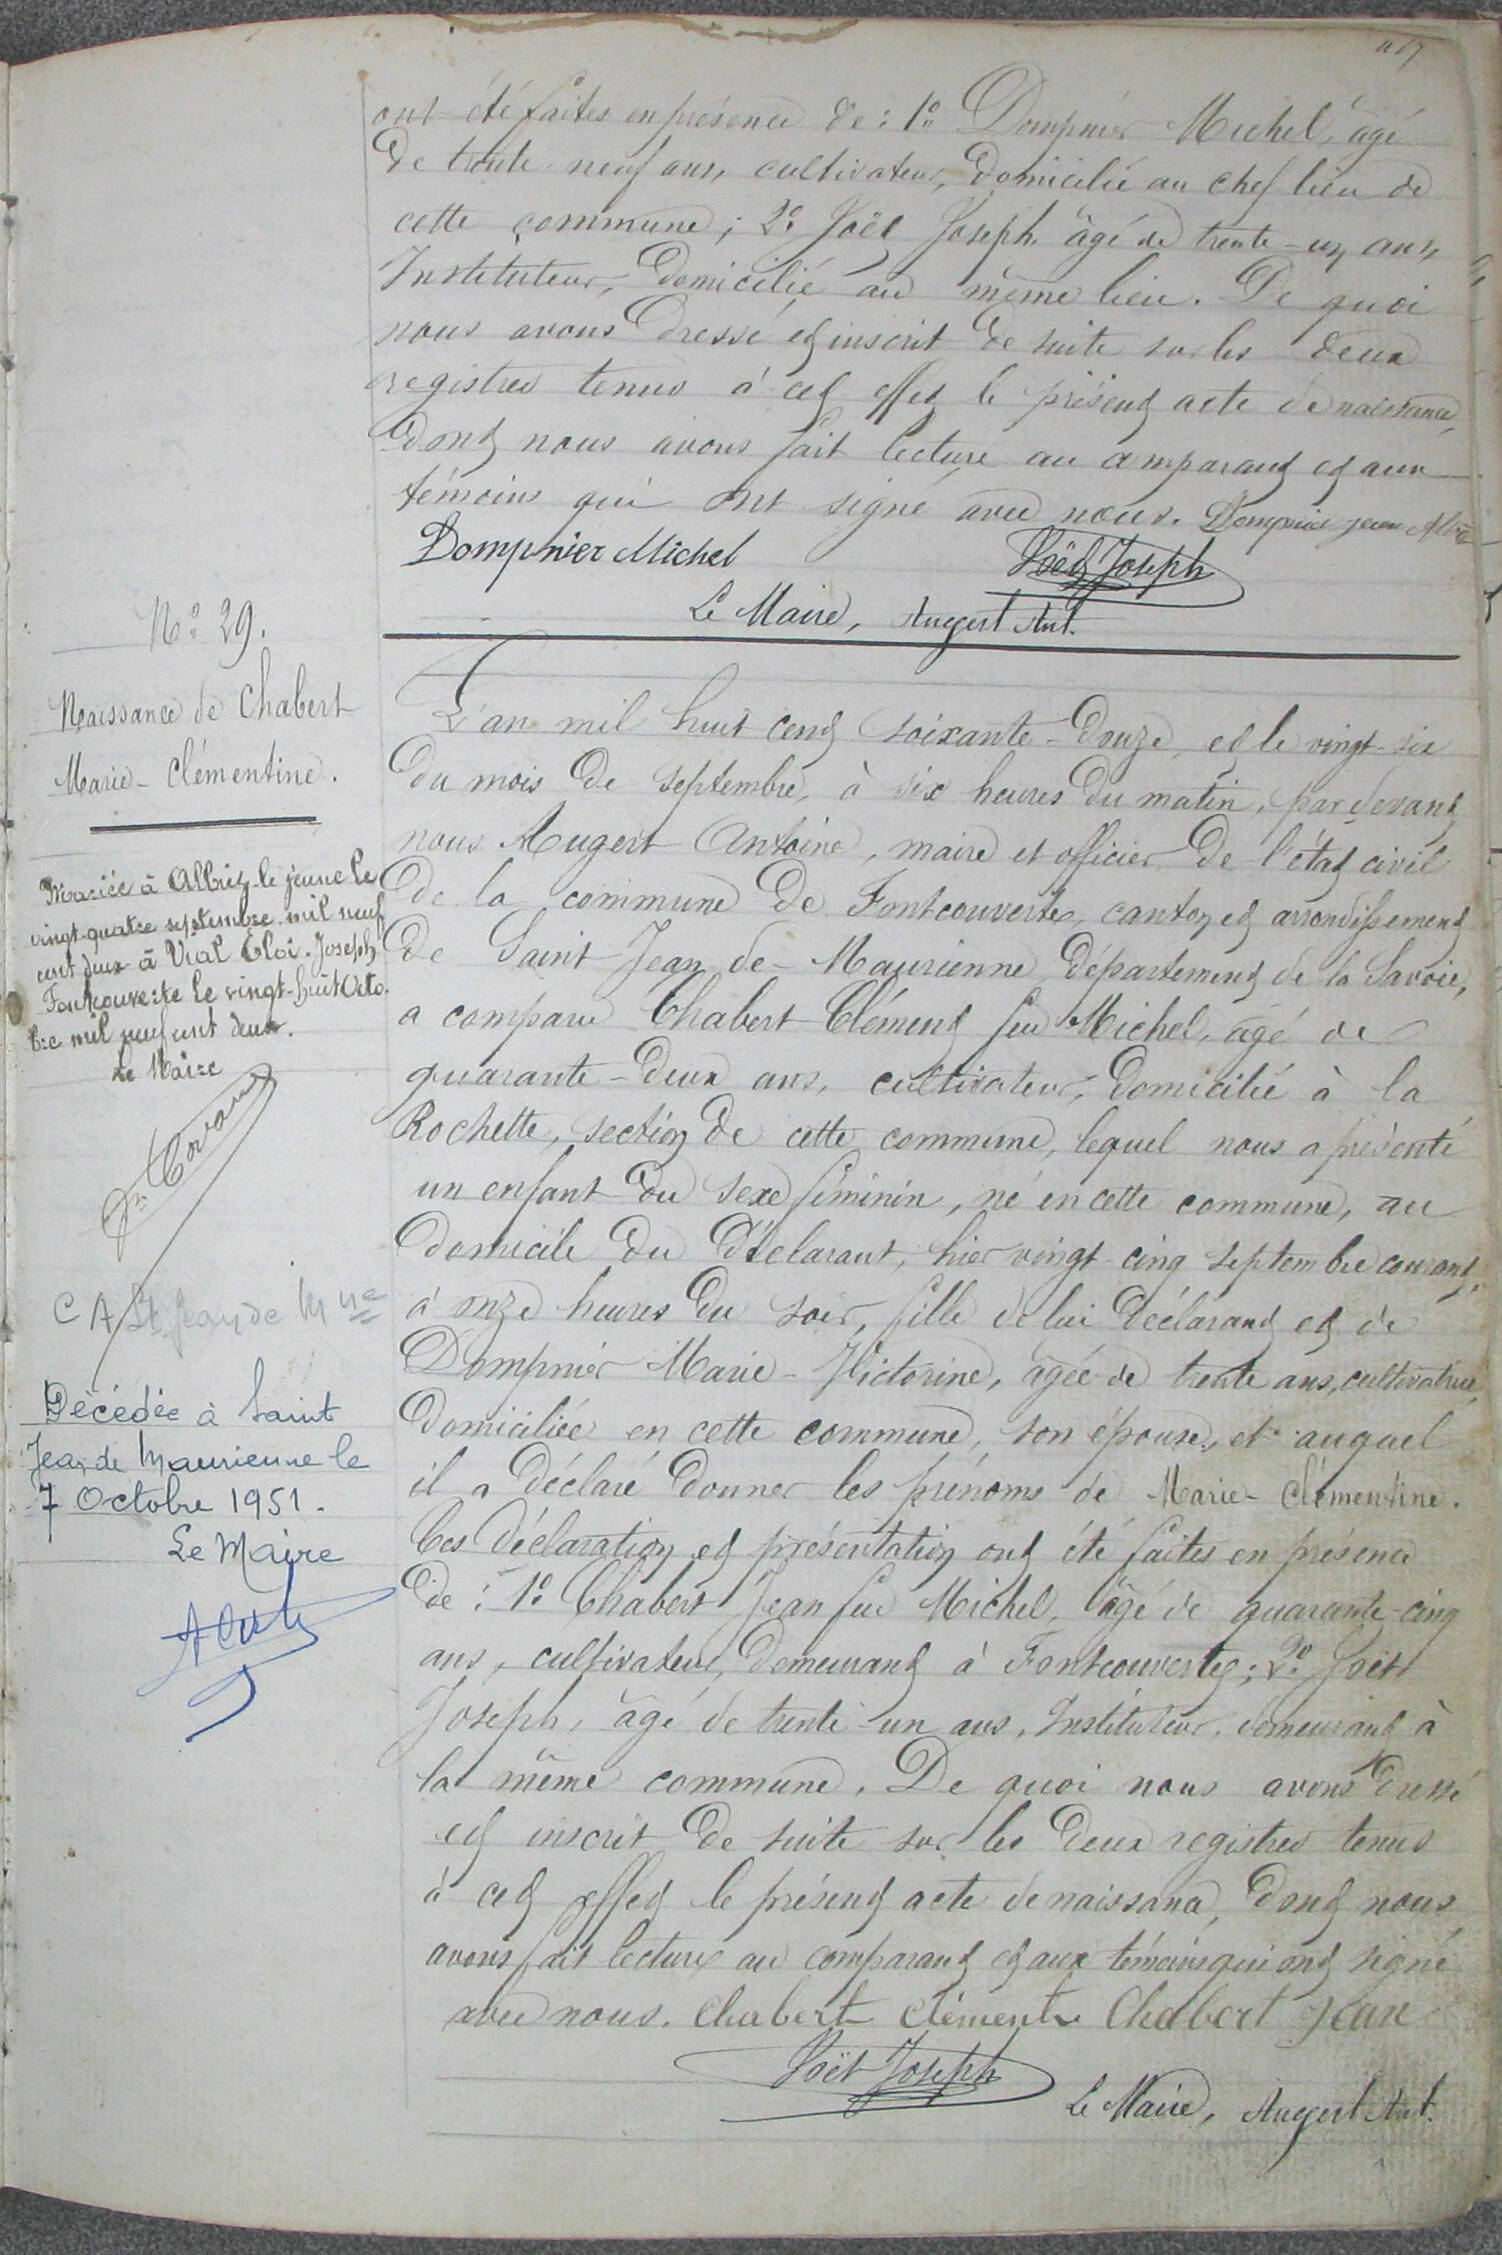 ont été faites en présence de : 1° Dompnier Michel, âgé
de trente-neuf ans, cultivateur, domicilié au chef lieu de
cette commune ; 2° Joët Joseph âgé de trente-un ans,
Instituteur, domicilié au même lieu. De quoi
nous avons dressé et inscrit de suite sur les deux
registres tenus à cet effet le présent acte de naissance,
dont nous avons fait lecture au comparant et aux
témoins qui ont signé avec nous. Dompnier jean
Dompnier Michel Joët Joseph
Le Maire, Augert Ant.
N° 29.
Naissance de Chabert
Marie-Clémentine.
Mariée à Albiez-le jeune le
vingt-quatre septembre mil neuf
cent deux à Vial Eloi-Joseph
Fontcouverte le vingt-huit Octo-
bre mil neuf cent deux.
Le Maire
C A St Jean de Mne
Décédée à Saint
Jean de Maurienne le
7 Octobre 1951.
Le Maire
L'an mil huit cent soixante-douze, et le vingt-six
du mois de septembre, à six heures du matin, par devant
nous Augert Antoine, maire et officier de l'état civil
de la commune de Fontcouverte, canton et arrondissement
de Saint Jean-de-Maurienne, département de la Savoie,
a comparu Chabert Clément feu Michel, âgé de
quarante-deux ans, cultivateur, domicilié à la
Rochette, section de cette commune, lequel nous a présenté
un enfant du sexe féminin, né en cette commune, au
domicile du déclarant, hier vingt-cinq septembre courant,
à onze heures du soir, fille de lui déclarant et de
Dompnier Marie-Victorine, âgée de trente ans, cultivatrice,
domiciliée en cette commune, son épouse, et auquel
il a déclaré donner les prénoms de Marie-Clémentine.
Ces déclaration et présentation ont été faites en présence
de : 1° Chabert Jean feu Michel, âgé de quarante-cinq
ans, cultivateur, demeurant à Fontcouverte ; 2° Joët
Joseph, âgé de trente-un ans, Instituteur, demeurant à
la même commune. De quoi nous avons dressé
et inscrit de suite sur les deux registres tenus
à cet effet le présent acte de naissance, dont nous
avons fait lecture au comparant et aux témoins qui ont signé
avec nous. Chabert Clément Chabert Jean
Joët Joseph Le Maire, Augert Ant.